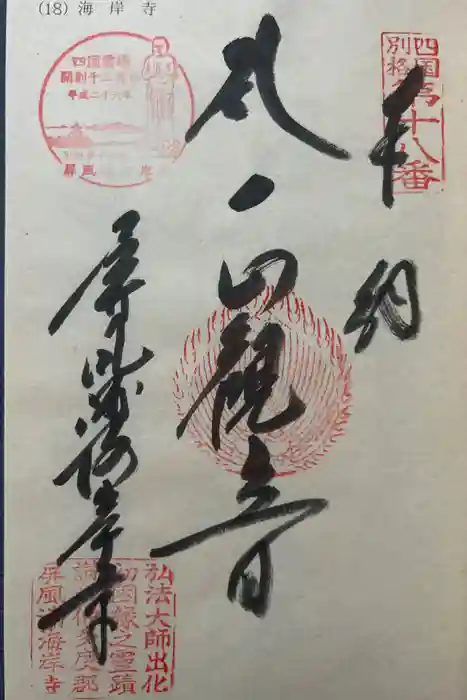 (18) 海岸寺
四国
別格
第十八番
奉納
四国霊場
開創千二百年
平成二十六年
屏風
聖観音
屏風浦海岸寺
弘法大師出化
初因縁之霊蹟
讃岐多度郡
屏風浦海岸寺